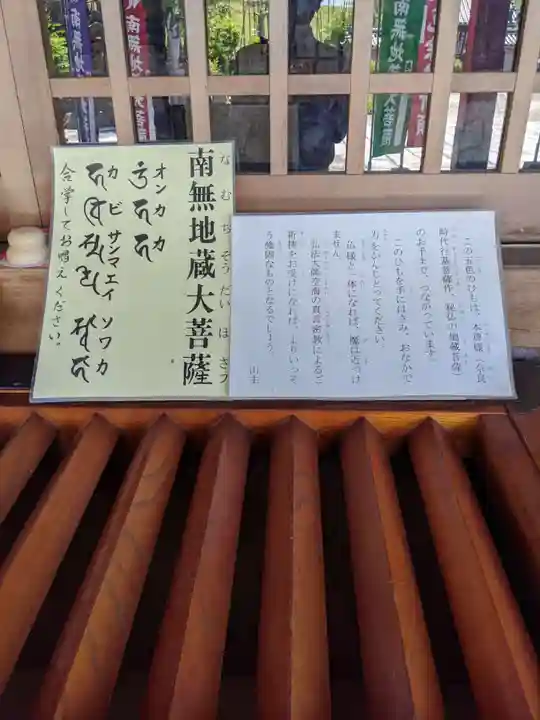 南無地蔵大菩薩
なむぢぞうだいぼさつ
オンカカ
カビサンマエイ ソワカ
合掌してお唱え下さい。
この五色のひもは、本尊様（奈良
時代行基菩薩作、秘仏の地蔵菩薩）
のお手まで、つながっています。
このひもを手にはさみ、おなかで
力をかんじとってください。
仏様と一体になれば、魔は近づけ
ません。
弘法大師空海の真言密教によるご
祈祷をお受けになれば、よりいっそ
う強固なものとなるでしょう。
山主
南無地
南無地蔵大菩薩